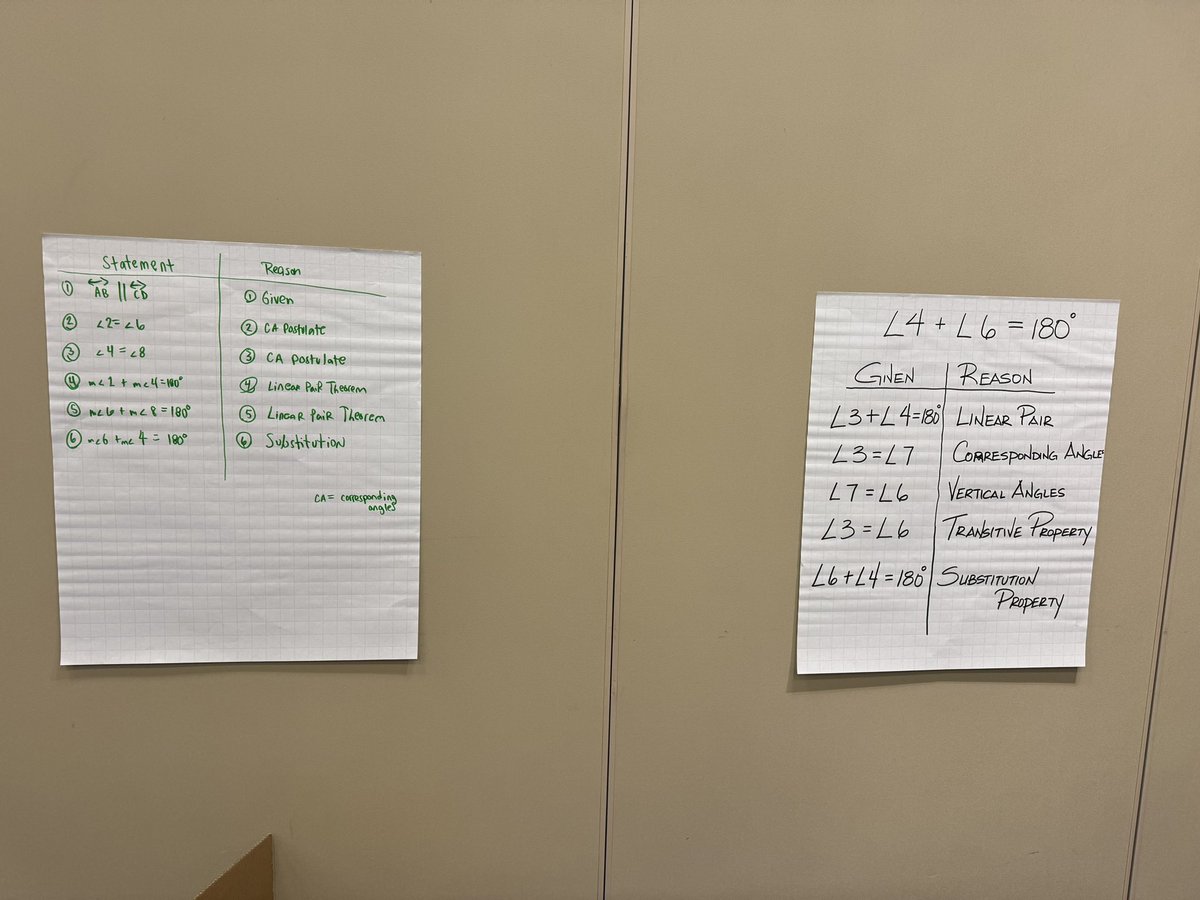 Statement | Reason
① AB || CD | ① Given
② ∠2=∠6 | ② CA Postulate
③ ∠4=∠8 | ③ CA postulate
④ m∠2 + m∠4=180° | ④ Linear Pair Theorem
⑤ m∠6 + m∠8=180° | ⑤ Linear Pair Theorem
⑥ m∠6 + m∠4 = 180° | ⑥ Substitution
CA = corresponding
angles
∠4 + ∠6 = 180°
GIVEN | REASON
∠3+∠4=180° | LINEAR PAIR
∠3=∠7 | CORRESPONDING ANGLE
∠7=∠6 | VERTICAL ANGLES
∠3=∠6 | TRANSITIVE PROPERTY
∠6+∠4=180° | SUBSTITUTION
PROPERTY